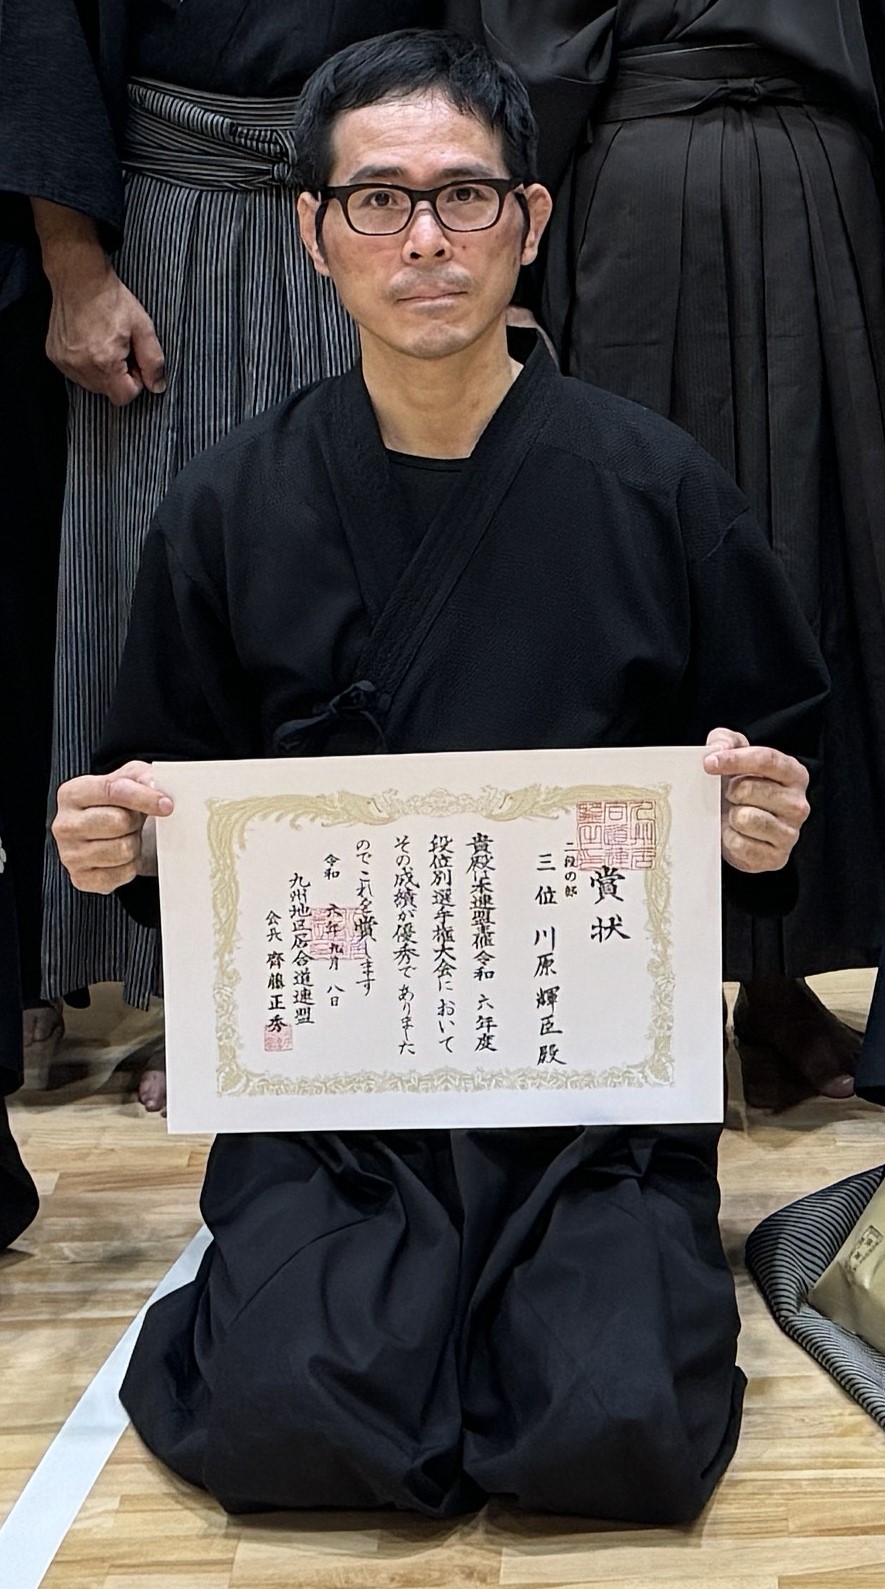 賞状
二段の部
三位 川原 輝臣 殿
貴殿は本連盟主催令和 六年度
段位別選手権大会において
その成績が優秀でありました
のでこれを賞します
令和 六年九月 八日
九州地区居合道連盟
会長 齊藤正秀